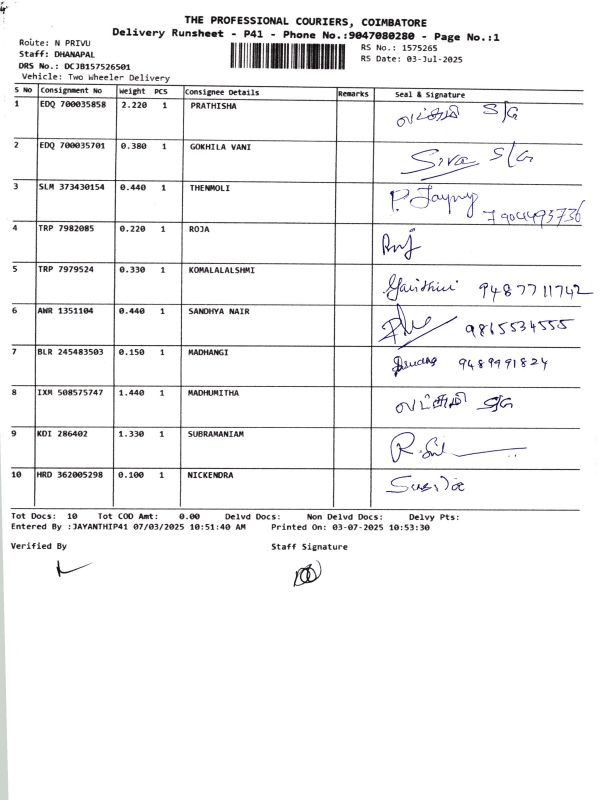 THE PROFESSIONAL COURIERS, COIMBATORE
Delivery Runsheet - P41 - Phone No.:9047080280 - Page No.:1
Route: N PRIVU
Staff: DHANAPAL
DRS No.: DCJB157526501
Vehicle: Two Wheeler Delivery
RS No.: 1575265
RS Date: 03-Jul-2025
S No Consignment No Weight PCS Consignee Details Remarks Seal & Signature
1 EDQ 700035858 2.220 1 PRATHISHA லட்சுமி S/G
2 EDQ 700035701 0.380 1 GOKHILA VANI Siva S/G
3 SLM 373430154 0.440 1 THENMOLI
7904493736
4 TRP 7982085 0.220 1 ROJA
5 TRP 7979524 0.330 1 KOMALALALSHMI 9487711742
6 AWR 1351104 0.440 1 SANDHYA NAIR 9865534555
7 BLR 245483503 0.150 1 MADHANGI 9489991824
8 IXM 508575747 1.440 1 MADHUMITHA லட்சுமி S/G
9 KDI 286402 1.330 1 SUBRAMANIAM
10 HRD 362005298 0.100 1 NICKENDRA
Tot Docs: 10 Tot COD Amt: 0.00 Delvd Docs: Non Delvd Docs: Delvy Pts:
Entered By :JAYANTHIP41 07/03/2025 10:51:40 AM Printed On: 03-07-2025 10:53:30
Verified By Staff Signature